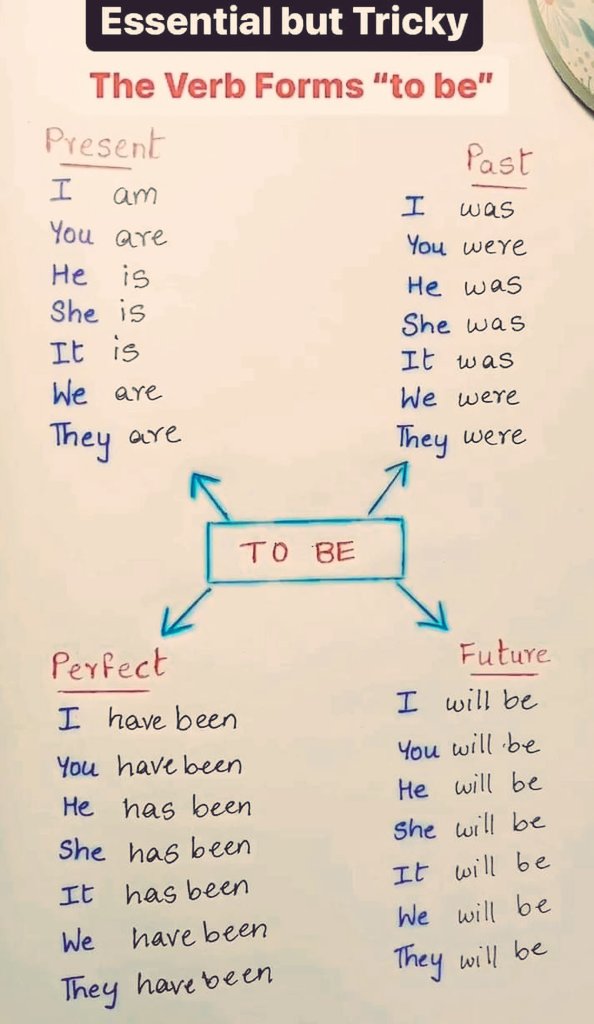 Essential but Tricky
The Verb Forms “to be”
Present
I am
You are
He is
She is
It is
We are
They are
Past
I was
You were
He was
She was
It was
We were
They were
TO BE
Perfect
I have been
You have been
He has been
She has been
It has been
We have been
They have been
Future
I will be
You will be
He will be
She will be
It will be
We will be
They will be